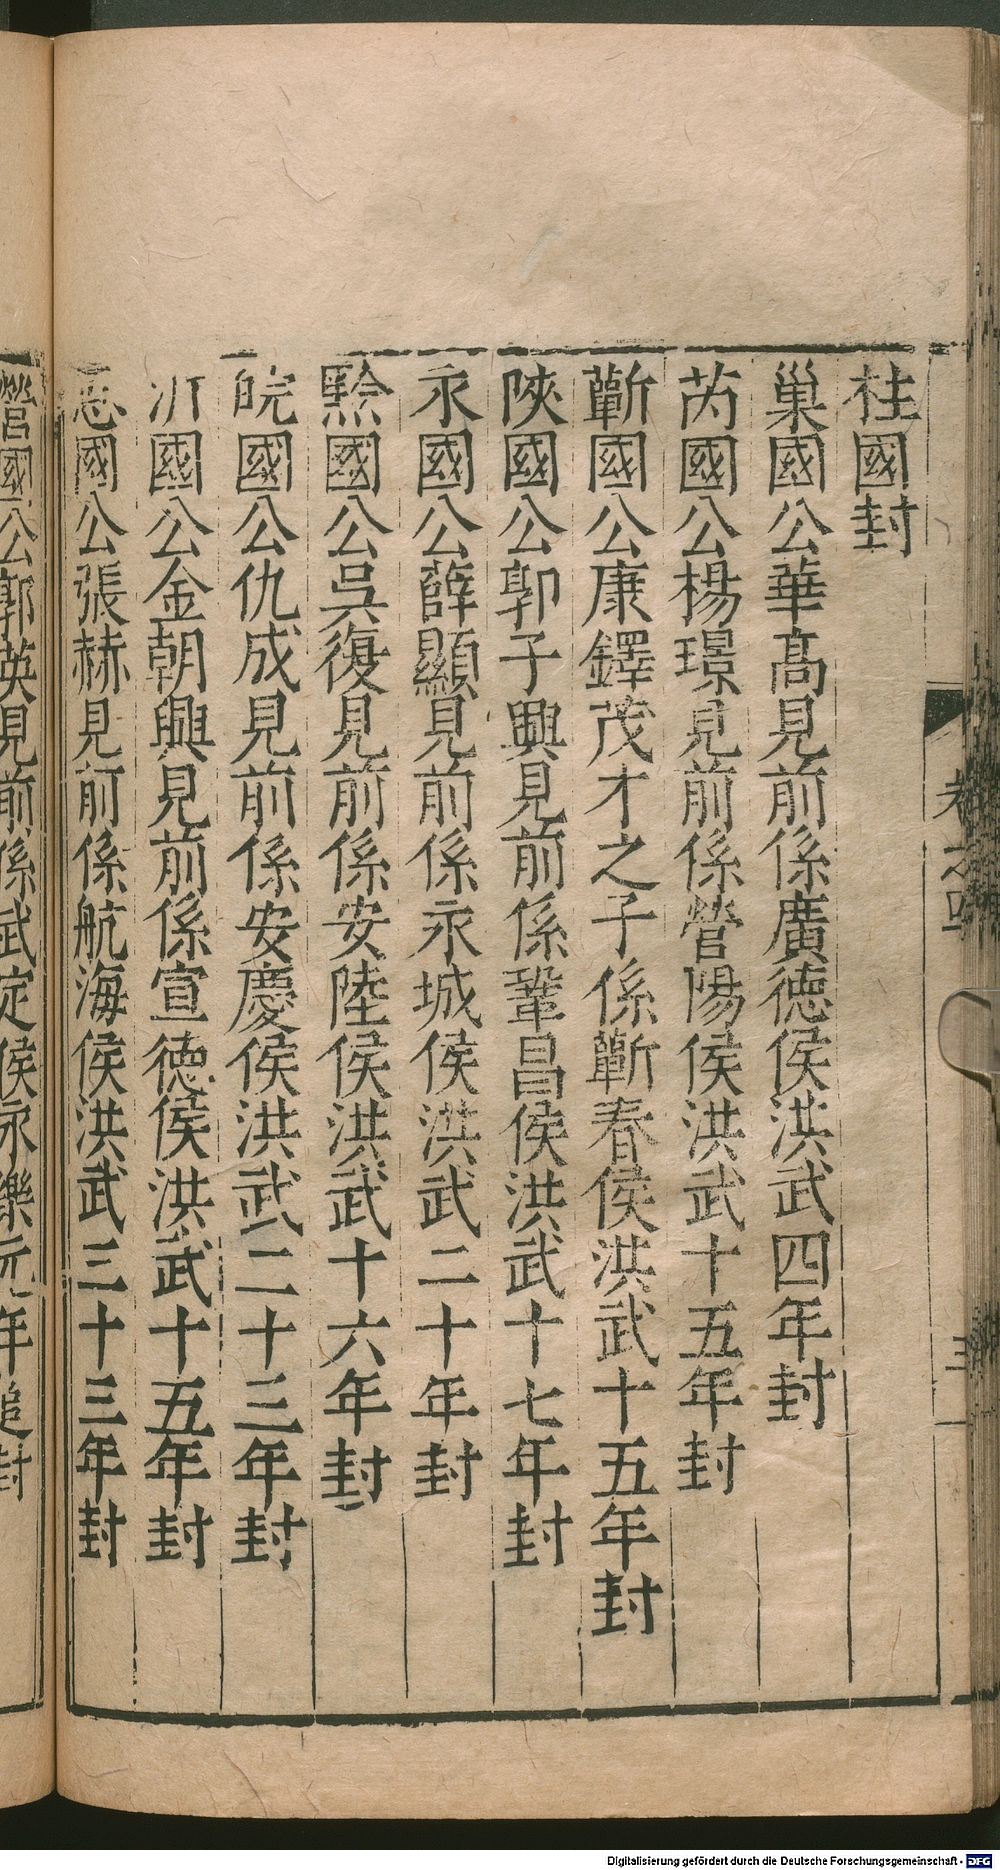 柱國封
巢國公華髙見前係廣德侯洪武四年封
芮國公楊璟見前係營陽侯洪武十五年封
蘄國公康鐸茂才之子係蘄春侯洪武十五年封
陜國公郭子興見前係鞏昌侯洪武十七年封
永國公薛顯見前係永城侯洪武二十年封
黔國公吳復見前係安陸侯洪武十六年封
皖國公仇成見前係安慶侯洪武二十三年封
沂國公金朝興見前係宣德侯洪武十五年封
國公張赫見前係航海侯洪武三十三年封
營國公郭英見前係武定侯永樂元年追封
Digitalisierung gefördert durch die Deutsche Forschungsgemeinschaft - DFG